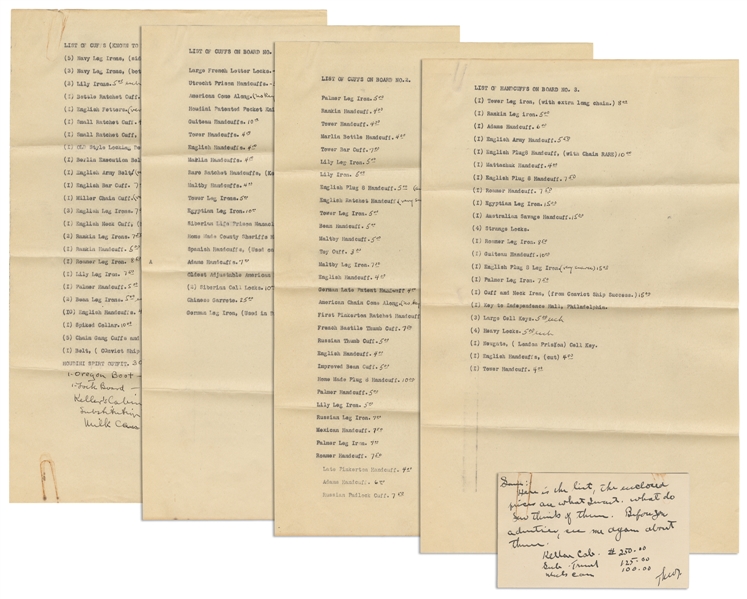 LIST OF CUFFS (KNOWN TO
(5) Navy Leg Irons,
(3) Navy Leg Irons,
(3) Lily Irons. 5.00
(I) Bottle Ratchet Cuff.
(I) English
(I) Small Ratchet Cuff.
(I) Small Ratchet Cuff.
(I) Old Style Looking
(I) Berlin Execution Bel
(I) English Army Belt
(I) English Bar Cuff.
(I) Hiller Chain Cuff
(3) English Leg Irons.
(I) English Neck Cuff.
(2) Rankin Leg Irons.
(I) Rankin Handcuff.
(I) Roamer Leg Iron
(I) Lily Leg Iron.
(I) Palmer Handcuff.
(2) Bean Leg Irons.
English Handcuffs
(I) Spiked Collar. 10.00
(5) Chain Gang Cuffs and
(I) Belt, ( Convict Ship
SPIRIT OUTFIT.
1. Oregon Boot
1. Lock Board
Kellar Cabin
Substitution
Milk Can
LIST OF CUFFS ON BOARD NO.
Large French Letter Locks.
Utrecht Prison Handcuffs.
American Come Along.
Houdini Patented Pocket
Guiteau Handcuffs. 10.00
Tower Handcuffs. 4.00
English Handcuffs. 4.00
Marlin Handcuffs. 4.00
Rare Ratchet Handcuffs,
Maltby Handcuffs. 4.00
Tower Leg Irons. 5.00
Egyptian Leg Iron. 10.00
Siberian Life Prison
Home Made County Sheriffs
Spanish Handcuffs, (Used
A Adams Handcuffs. 7.00
Oldest Adjustable American
(2) Siberian Cell Locks. 10.00
Chinese Garrote. 25.00
German Leg Iron, (Used in
LIST OF CUFFS ON BOARD NO.2.
Palmer Leg Iron. 5.00
Rankin Handcuff. 4.00
Tower Handcuff. 4.00
Marlin Bottle Handcuff. 4.00
Tower Bar Cuff. 7.00
Lily Leg Iron. 5.00
Lily Iron. 5.00
English Plug 8 Handcuff. 5.00
English Ratchet Handcuff
Tower Leg Iron. 5.00
Bean Handcuff. 5.00
Maltby Handcuff. 5.00
Toy Cuff. 3.00
Maltby Leg Iron. 7.00
English Handcuff. 4.00
German Late Patent Handcuff
American Chain Come Along
First Pinkerton Ratchet Handcuff
French Bastile Thumb Cuff. 7.50
Russian Thumb Cuff. 5.00
English Handcuff. 4.00
Improved Bean Cuff. 5.00
Home Made Plug 8 Handcuff. 10.00
Palmer Handcuff. 5.00
Lily Leg Iron. 5.00
Russian Leg Iron. 7.00
Mexican Handcuff. 8.00
Palmer Leg Iron. 7.00
Roamer Handcuff. 7.50
Late Pinkerton Handcuff. 4.00
Adams Handcuff. 6.00
Russian Padlock Cuff. 7.50
LIST OF HANDCUFFS ON BOARD NO. 3.
(I) Tower Leg Iron, (with extra long chain.) 8.00
(I) Rankin Leg Iron. 5.00
(I) Adams Handcuff. 6.00
(I) English Army Handcuff. 5.00
(I) English Plug8 Handcuff, (with Chain RARE) 10.00
(I) Mattashuk Handcuff. 4.00
(I) English Plug 8 Handcuff. 7.50
(I) Roamer Handcuff. 7.50
(I) Egyptian Leg Iron. 15.00
(I) Australian Savage Handcuff. 15.00
(4) Strange Locks.
(I) Roamer Leg Iron. 8.00
(I) Guiteau Handcuff. 10.00
(I) English Plug 8 Leg Iron (very rare) 15.00
(I) Palmer Leg Iron. 7.50
(I) Cuff and Neck Iron, (from Convict Ship Success.) 15.00
(I) Key to Independence Hall, Philadelphia.
(3) Large Cell Keys. 5.00 each
(4) Heavy Locks. 5.00 each
(I) Newgate, ( London Prision) Cell Key.
(I) English Handcuffs, (out) 4.00
(I) Tower Handcuff. 4.00
Here is the list, the enclosed
prices are what I want. what do
you think of them. Before you
advertise, see me again about
them.
Kellar Cab. $250.00
Sub. Trunk 125.00
Milk can 100.00